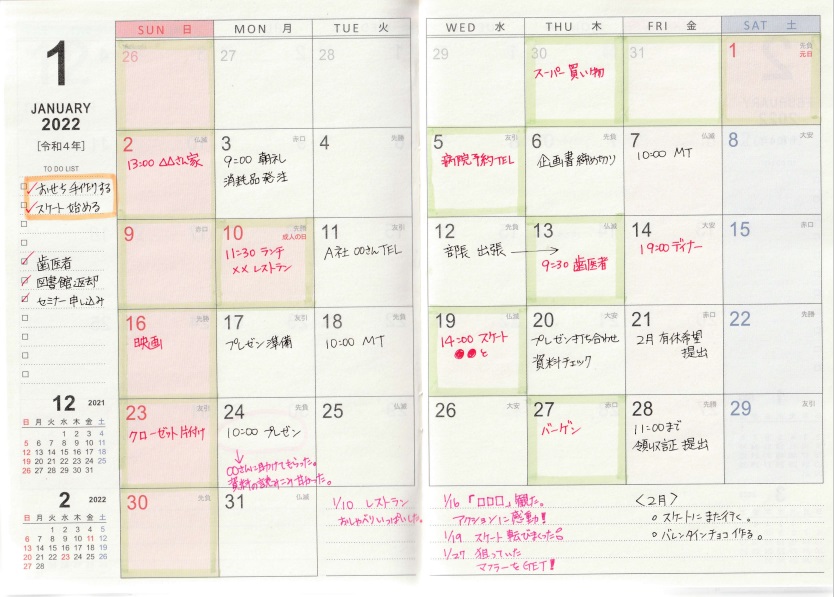 1
JANUARY
2022
[令和4年]
TO DO LIST
おせち手作りする
スケート始める
歯医者
図書館返却
セミナー申し込み
SUN 日 MON 月 TUE 火 WED 水 THU 木 FRI 金 SAT 土
26 先負 27 28 29 30 先負 31 1 先負
元日
スーパー買い物
2 仏滅 3 赤口 4 先勝 5 友引 6 先負 7 仏滅 8 大安
13:00 △△さん家
9:00 朝礼
消耗品発注
病院予約TEL
企画書締め切り
10:00 MT
9 赤口 10 先勝 11 友引 12 先負 13 仏滅 14 大安 15 赤口
成人の日
11:30 ランチ
××レストラン
A社 〇〇さんTEL
部長 出張 →
9:30 歯医者
19:00 ディナー
16 先勝 17 友引 18 先負 19 仏滅 20 大安 21 赤口 22 先勝
映画
プレゼン準備
10:00 MT
14:00 スケート
●●と
プレゼン打ち合わせ
資料チェック
2月 有休希望
提出
23 友引 24 先負 25 仏滅 26 大安 27 赤口 28 先勝 29 友引
クローゼット片付け
10:00 プレゼン
↓
〇〇さんに助けてもらった。
資料の読みこみ甘かった。
バーゲン
11:00まで
領収証 提出
30 先負 31 仏滅
1/10 レストラン
おしゃべりいっぱいした。
1/16 「□□□」観た。
アクションに感動!
1/19 スケート転びまくった
1/27 狙っていた
マフラーをGET!
<2月>
○ スケートにまた行く。
○ バレンタインチョコ作る。
12 2021
日 月 火 水 木 金 土
1 2 3 4
5 6 7 8 9 10 11
12 13 14 15 16 17 18
19 20 21 22 23 24 25
26 27 28 29 30 31
2 2022
日 月 火 水 木 金 土
1 2 3 4 5
6 7 8 9 10 11 12
13 14 15 16 17 18 19
20 21 22 23 24 25 26
27 28